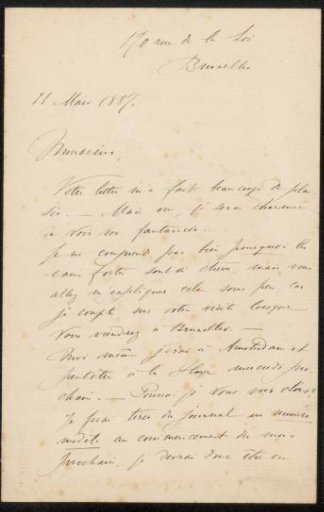 170 rue de la Loi
Bruxelles
11 Mars 1887.
Monsieur,
Votre lettre m'a fait beaucoup de plai
sir. — Mais oui, je serai charmé
à voir vos fantaisies....
Je ne comprend pas bien pourquoi les
eaux fortes sont si chers, mais vous
allez m'expliquer cela sous peu car
je compte sur votre visite lorsque
Vous viendrez à Bruxelles. —
Moi même j'irai à Amsterdam et
peutêtre à la Haye mercredi pro
chain. — Pourrai je vous voir alors?
Je ferai tirer du journal un numero
modèle au commencement du mois
prochain, je devrai donc être en